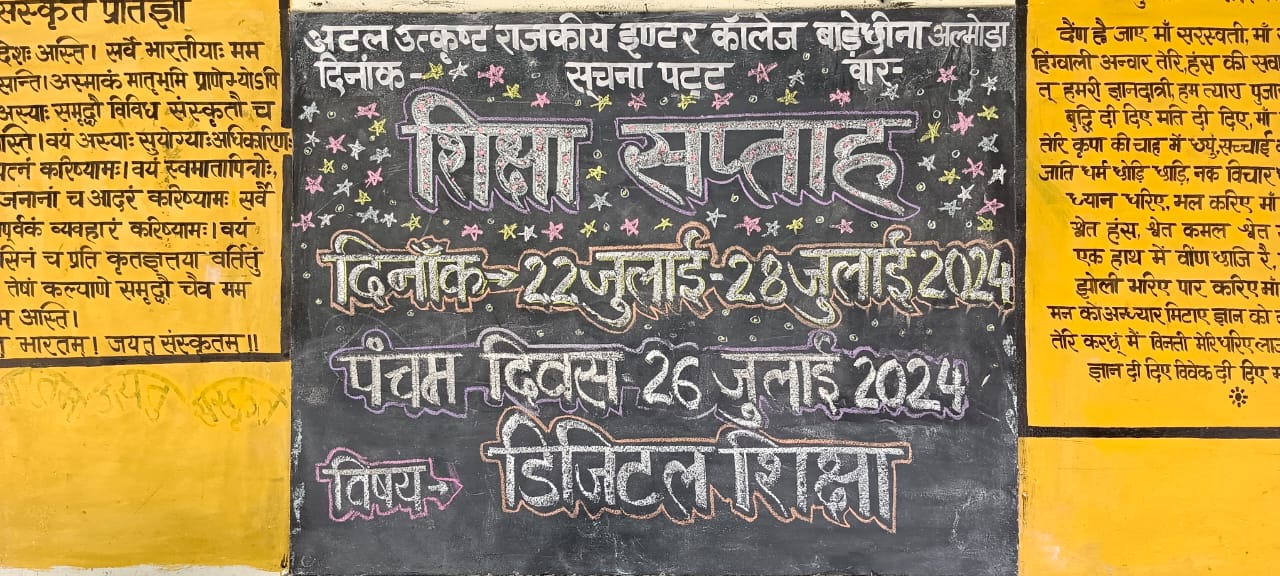 संस्कृत प्रतिज्ञा
देशः अस्ति। सर्वे भारतीयाः मम
सन्ति। अस्माकं मातृभूमि प्राणेभ्योऽपि
अस्याः समृद्धौ विविध संस्कृतौ च
स्ति। वयं अस्याः सुयोग्याः अधिकारिणः
यत्नं करिष्यामः। वयं स्वमातापित्रोः,
जनानां च आदरं करिष्यामः सर्वै
पूर्वकं व्यवहारं करिष्यामः। वयं
सिनं च प्रति कृतज्ञतया वर्तितुं
तेषां कल्याणे समृद्धौ चैव मम
म् अस्ति।
भारतम्। जयतु संस्कृतम्॥
अटल उत्कृष्ट राजकीय इण्टर कॉलेज बाड़ेछीना अल्मोड़ा
दिनांक - सूचना पट्ट वार-
शिक्षा सप्ताह
दिनाँक→ 22 जुलाई-28 जुलाई 2024
पंचम दिवस-26 जुलाई 2024
विषय→ डिजिटल शिक्षा
दैंण है जाए माँ सरस्वती, माँ
हिंग्वाली अन्वार तेरि, हंस की सवा
त् हमरी ज्ञानदात्री, हम त्यारा पुजा
बुद्धि दी दिए मति दी दिए, माँ
तेरि कृपा की चाह में छ्युं, सच्चाई
जाति धर्म छोड़ि छाड़ि, नक विचार
ध्यान धरिए, भल करिए माँ
श्वेत हंस, श्वेत कमल श्वेत
एक हाथ में वींण धाजि रै,
झोली भरिए पार करिए माँ
मन को अन्ध्यार मिटाए ज्ञान को
तेरि करछुं मैं विनती मेरि धरिए लाज
ज्ञान दी दिए विवेक दी दिए